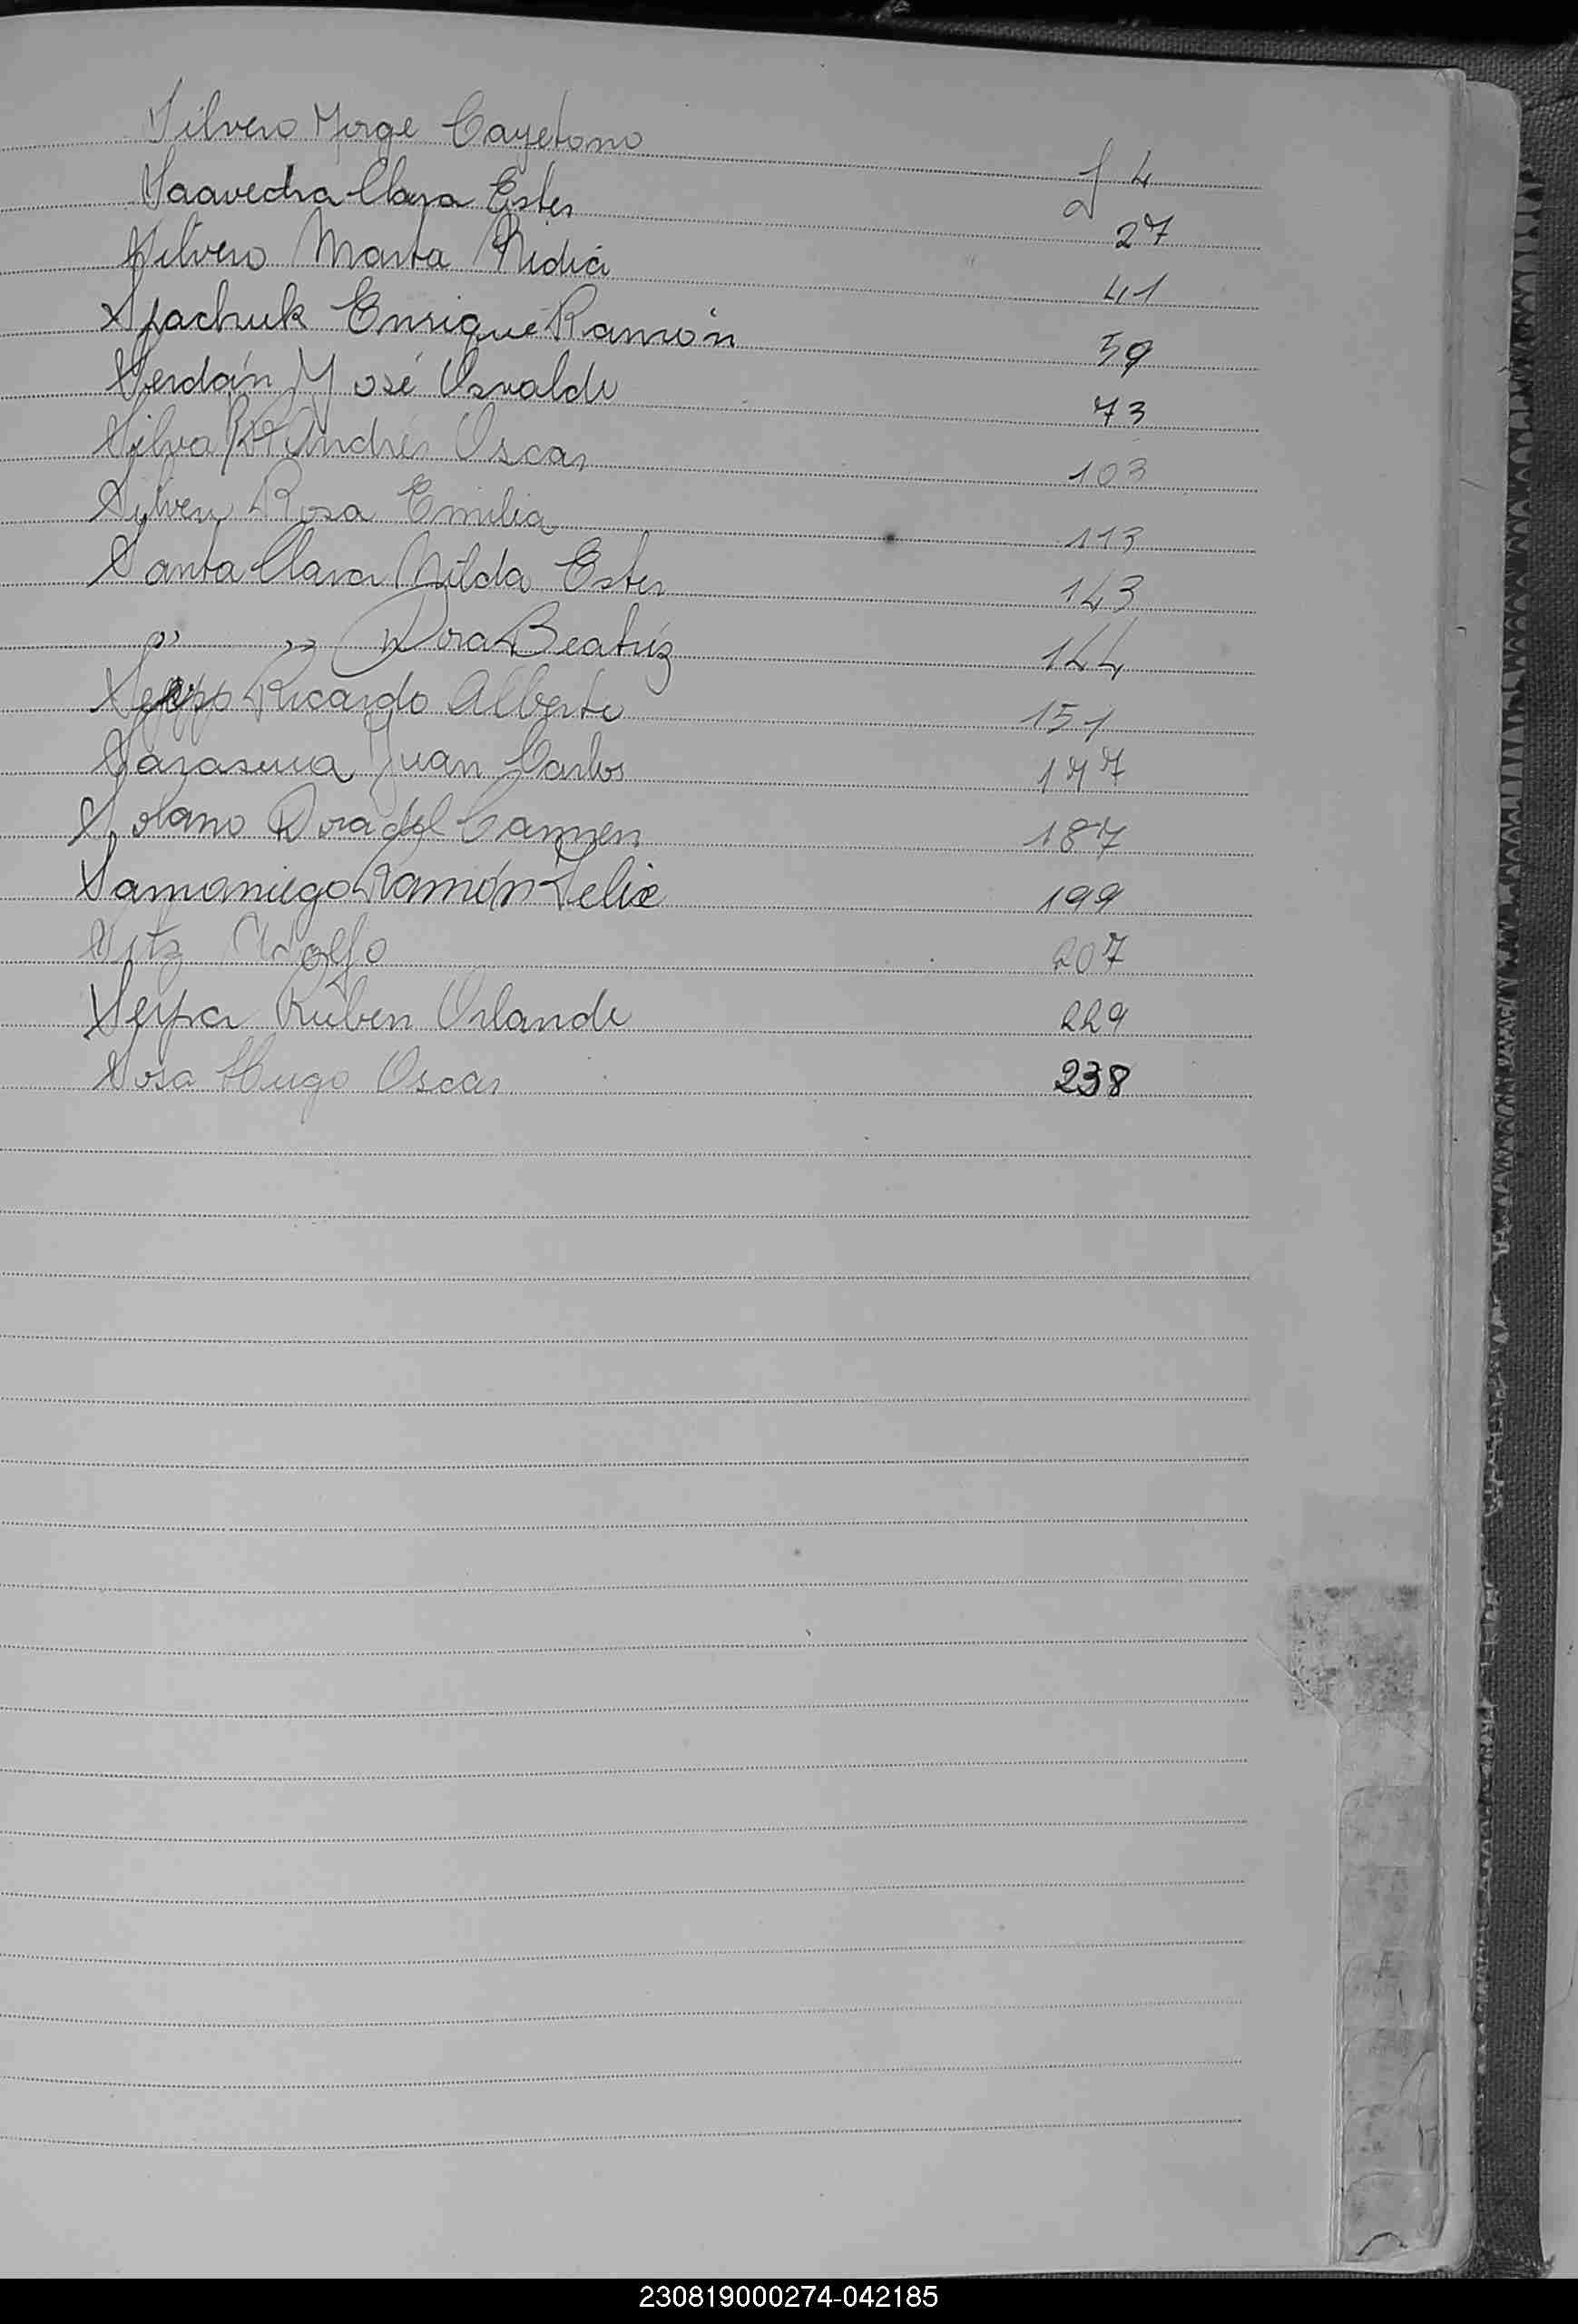 Silvero Jorge Cayetano f 4
Saavedra Clara Ester 27
Silvero Marta Nidia 41
Spachuk Enrique Ramón 59
Serdán José Osvaldo 73
Silva Andrés Oscar 103
Silvero Rosa Emilia 113
Santa Clara Nilda Ester 143
" " Dora Beatriz 144
Ricardo Alberto 151
Juan Carlos 177
Solano Dora del Carmen 187
Samaniego Ramón Felix 199
207
Serpa Ruben Orlando 229
Sosa Hugo Oscar 238
230819000274-042185